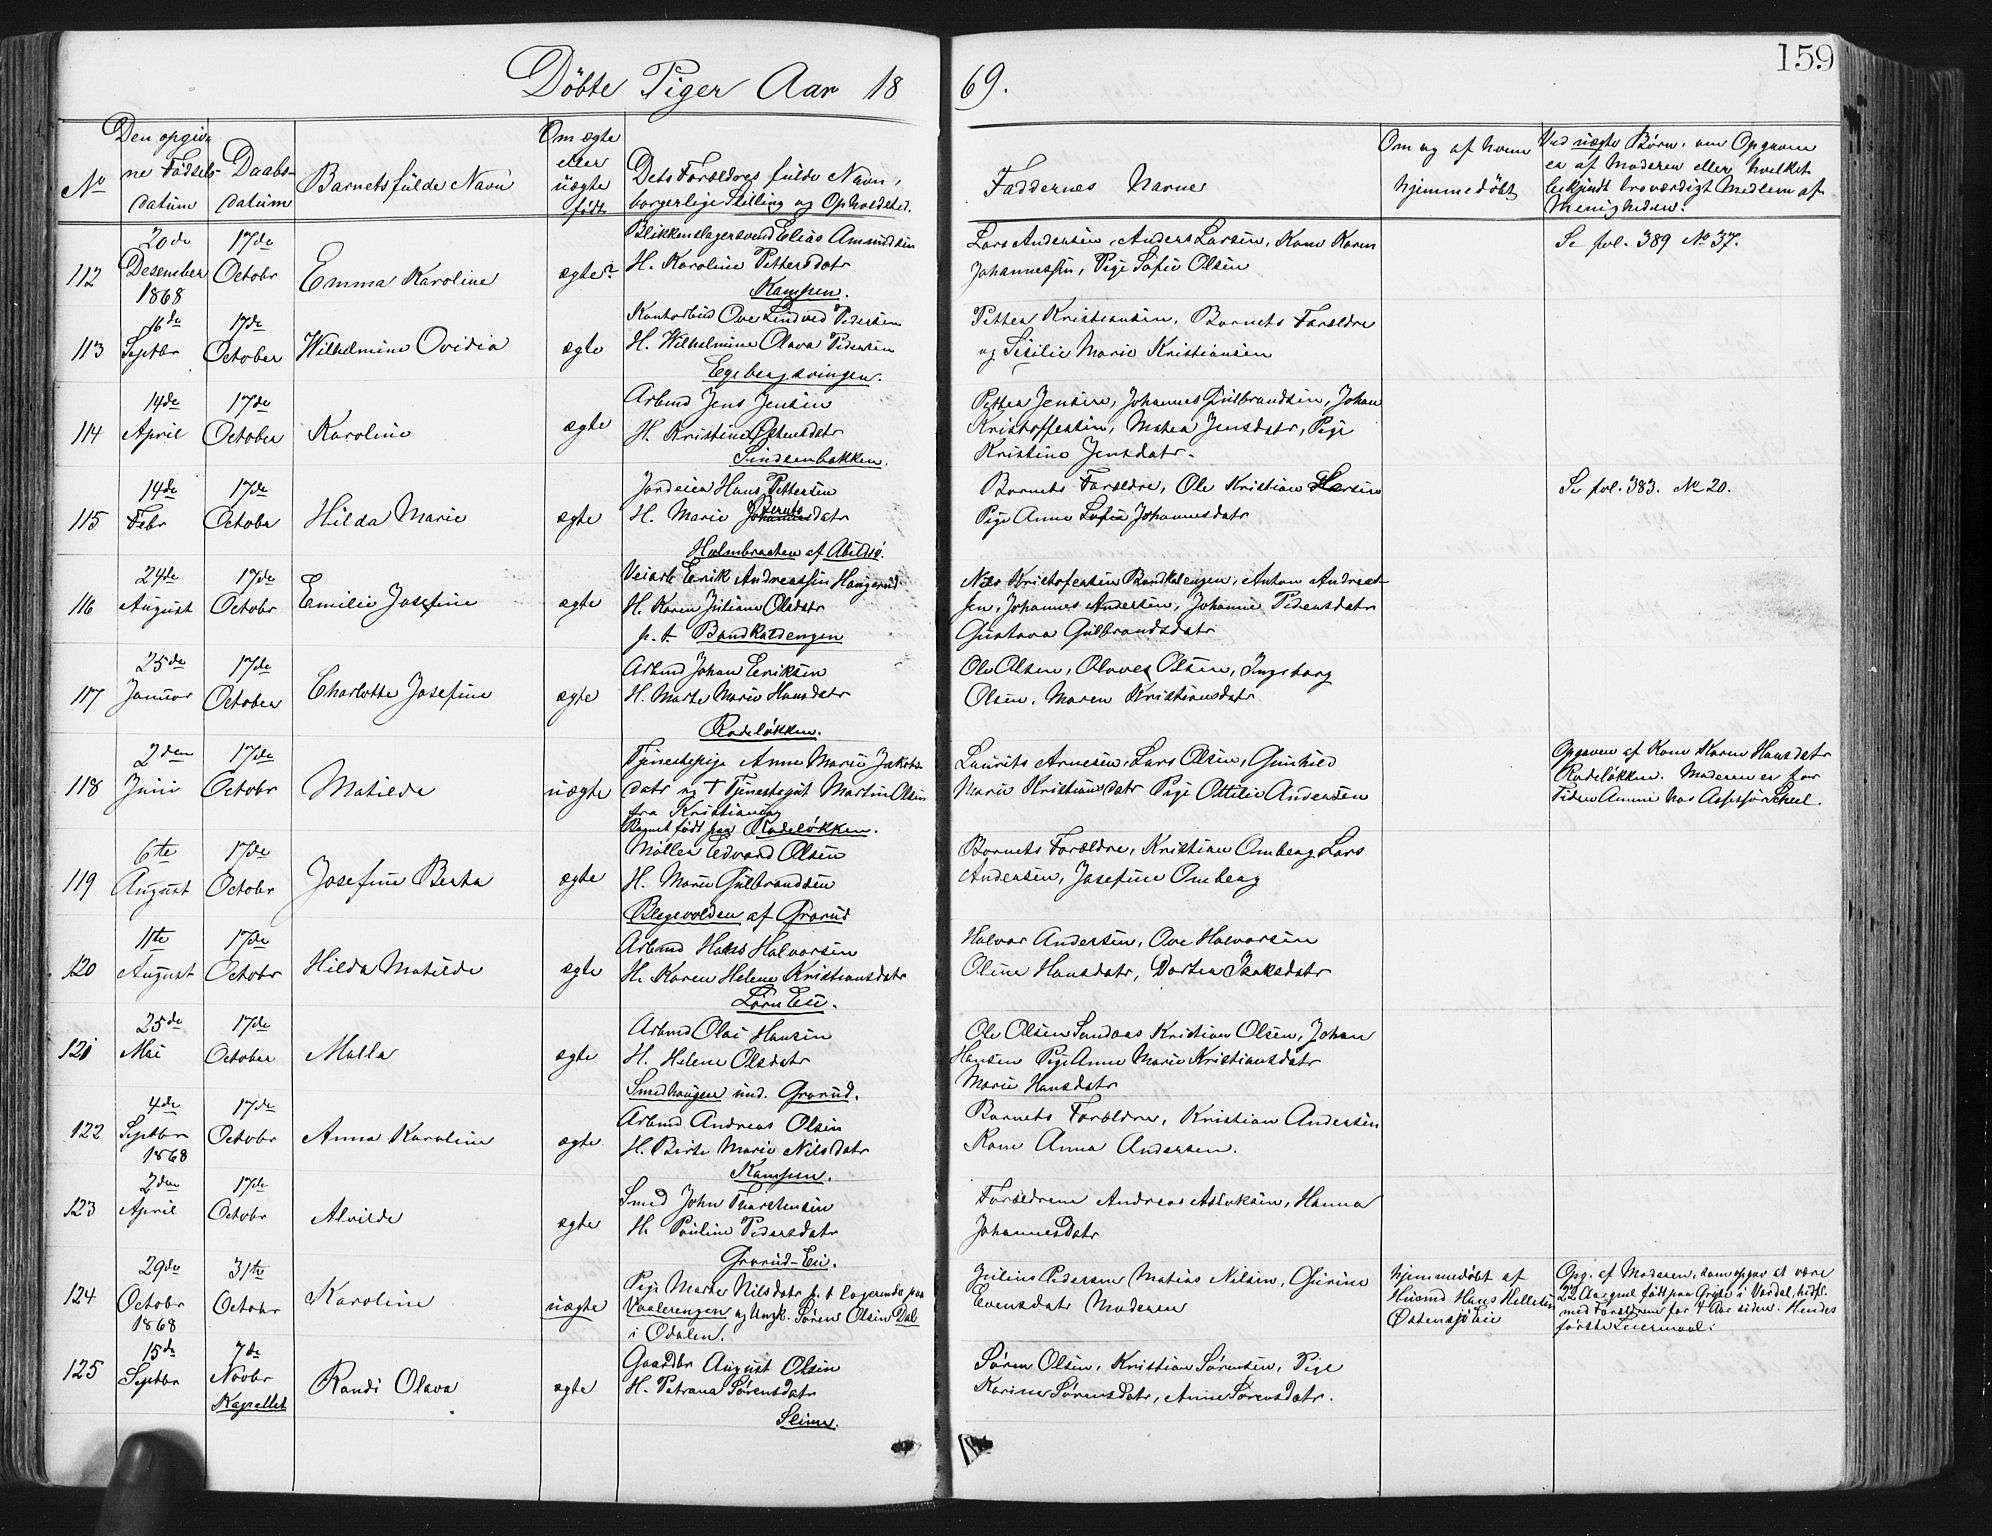 159
Döbte Piger Aar 1869.
No
Den opgivne Fødselsdatum
Daabsdatum
Barnets fulde Navn
Om ægte eller uægte født
Dets Forældres fulde Navn, borgerlige Stilling og Opholdsted.
Faddernes Navne
Om og af hvem hjemmedöbt
Ved uægte Børn, om Opgaven er af Moderen eller hvilket bekjendt troværdigt Medlem af Menigheden.
112
20de Desember 1868
17de Octobr
Emma Karoline
ægte?
Blikkenslagersvend Elias Amundsen
H. Karoline Pettersdatr
Kampen.
Lars Andersen, Anders Larsen, Kone Karen
Johannessen, Pige Sofie Olsen
Se fol. 389 No 37.
113
16de Septbr
17de October
Wilhelmine Ovidia
ægte
Kontorbud Ove Lindved Pedersen
H. Wilhelmine Olava Pedersen
Egebergsvingen.
Pettea Kristiansen, Barnets Forældre
og Sesilie Marie Kristiansen
114
14de April
17de October
Karoline
ægte
Arbmd Jens Jensen
H. Kristine Ostensdatr
Sindsenbakken.
Pettea Jensen, Johannes Gulbrandsen, Johan
Kristoffersen, Matea Jensdatr, Pige
Kristine Jensdatr.
115
14de Febr
17de October
Hilda Marie
ægte
Jordeier Hans Pettersen
H. Marie Berntsdatr
Holmbraaten af Abildsø.
Barnets Forældre, Ole Kristian Larsen
Pige Anne Sofie Johannesdatr
Se fol. 383. No 20.
116
24de August
17de Octobr
Emilie Josefine
ægte
Veiarb Eerik Andreassen Haugerud
H. Karen Juliane Olsdatr
p. t Bandkaldengen
Nils Kristofersen Bandkalengen, Anton Andreas-
sen, Johannes Andersen, Johanne Pedersdatr
Gustava Gulbrandsdatr
117
25de Januar
17de October
Charlotte Josefine
ægte
Arbmd Johan Eeriksen
H. Marte Marie Hansdatr
Rodeløkken.
Ole Olsen, Olaves Olsen, Ingeborg
Olsen, Maren Kristiansdatr
118
2den Juni
17de Octobr
Matilde
uægte
Tjenestepige Anne Marie Jakobs-
datr og † Tjenestegut Martin Olsen
fra Kristiania
Barnet født paa Rodeløkken.
Laurits Arnesen, Lars Olsen, Gunhild
Marie Kristiansdatr Pige Ottilie Andersen
Opgaven af Kone Karen Hansdatr
Rodeløkken. Moderen er for
Tiden Amme hos Assessor Scheel.
119
6te August
17de Octobr
Josefine Berta
ægte
Møller Edvard Olsen
H. Marie Gulbrandsen
Blegevolden af Grorud
Barnets Forældre, Kristian Omberg Lars
Andersen, Josefine Omberg
120
11te August
17de Octobr
Hilda Matilde
ægte
Arbmd Hans Halvorsen
H. Karen Helene Kristiansdatr
Lørn Eie.
Halvor Andersen, Ove Halvorsen
Oline Hansdatr, Dortea Isaksdatr
121
25de Mai
17de October
Malla
ægte
Arbmd Olai Hansen
H. Helene Olsdatr
Smedhaugen und. Grorud.
Ole Olsen Sundaas Kristian Olsen, Johan
Hansen Pige Anne Marie Kristiansdatr
Marie Hansdatr
122
4de Septbr 1868
17de Octobr
Anna Karoline
ægte
Arbmd Andreas Olsen
H. Birte Marie Nilsdatr
Kampen.
Barnets Forældre, Kristian Andersen
Kone Anna Andersen.
123
2den April
17de Octobr
Alvilde
ægte
Smed John Thorstensen
H. Pauline Pedersdatr
Grorud-Eie.
Forældrene Andreas Aslaksen, Hanna
Johannesdatr
124
29de Octobr 1868
31te Octobr
Karoline
uægte
Pige Marte Nilsdatr p. t logerende paa
Vaalerengen og Ungk. Søren Olsen Dal
i Odalen.
Julius Pedersen Matias Nilsen, Gurine
Evensdatr Moderen
hjemmedöbt af
Husmd Hans Hellesen
Østensjö Eie
Opg. af Moderen, som opgav at være
22 Aar gml født paa Grjøe i Vardal, hidfl.
med Forældrene for 4 Aar siden. Hendes
første Leiermaal.
125
15de Septbr
7de Novbr
Kapellet
Randi Olava
ægte
Gaardbr August Olsen
H. Petrana Sørensdatr
Slime.
Søren Olsen, Kristian Sørensen, Pige
Karine Sørensdatr, Anne Sørensdatr.